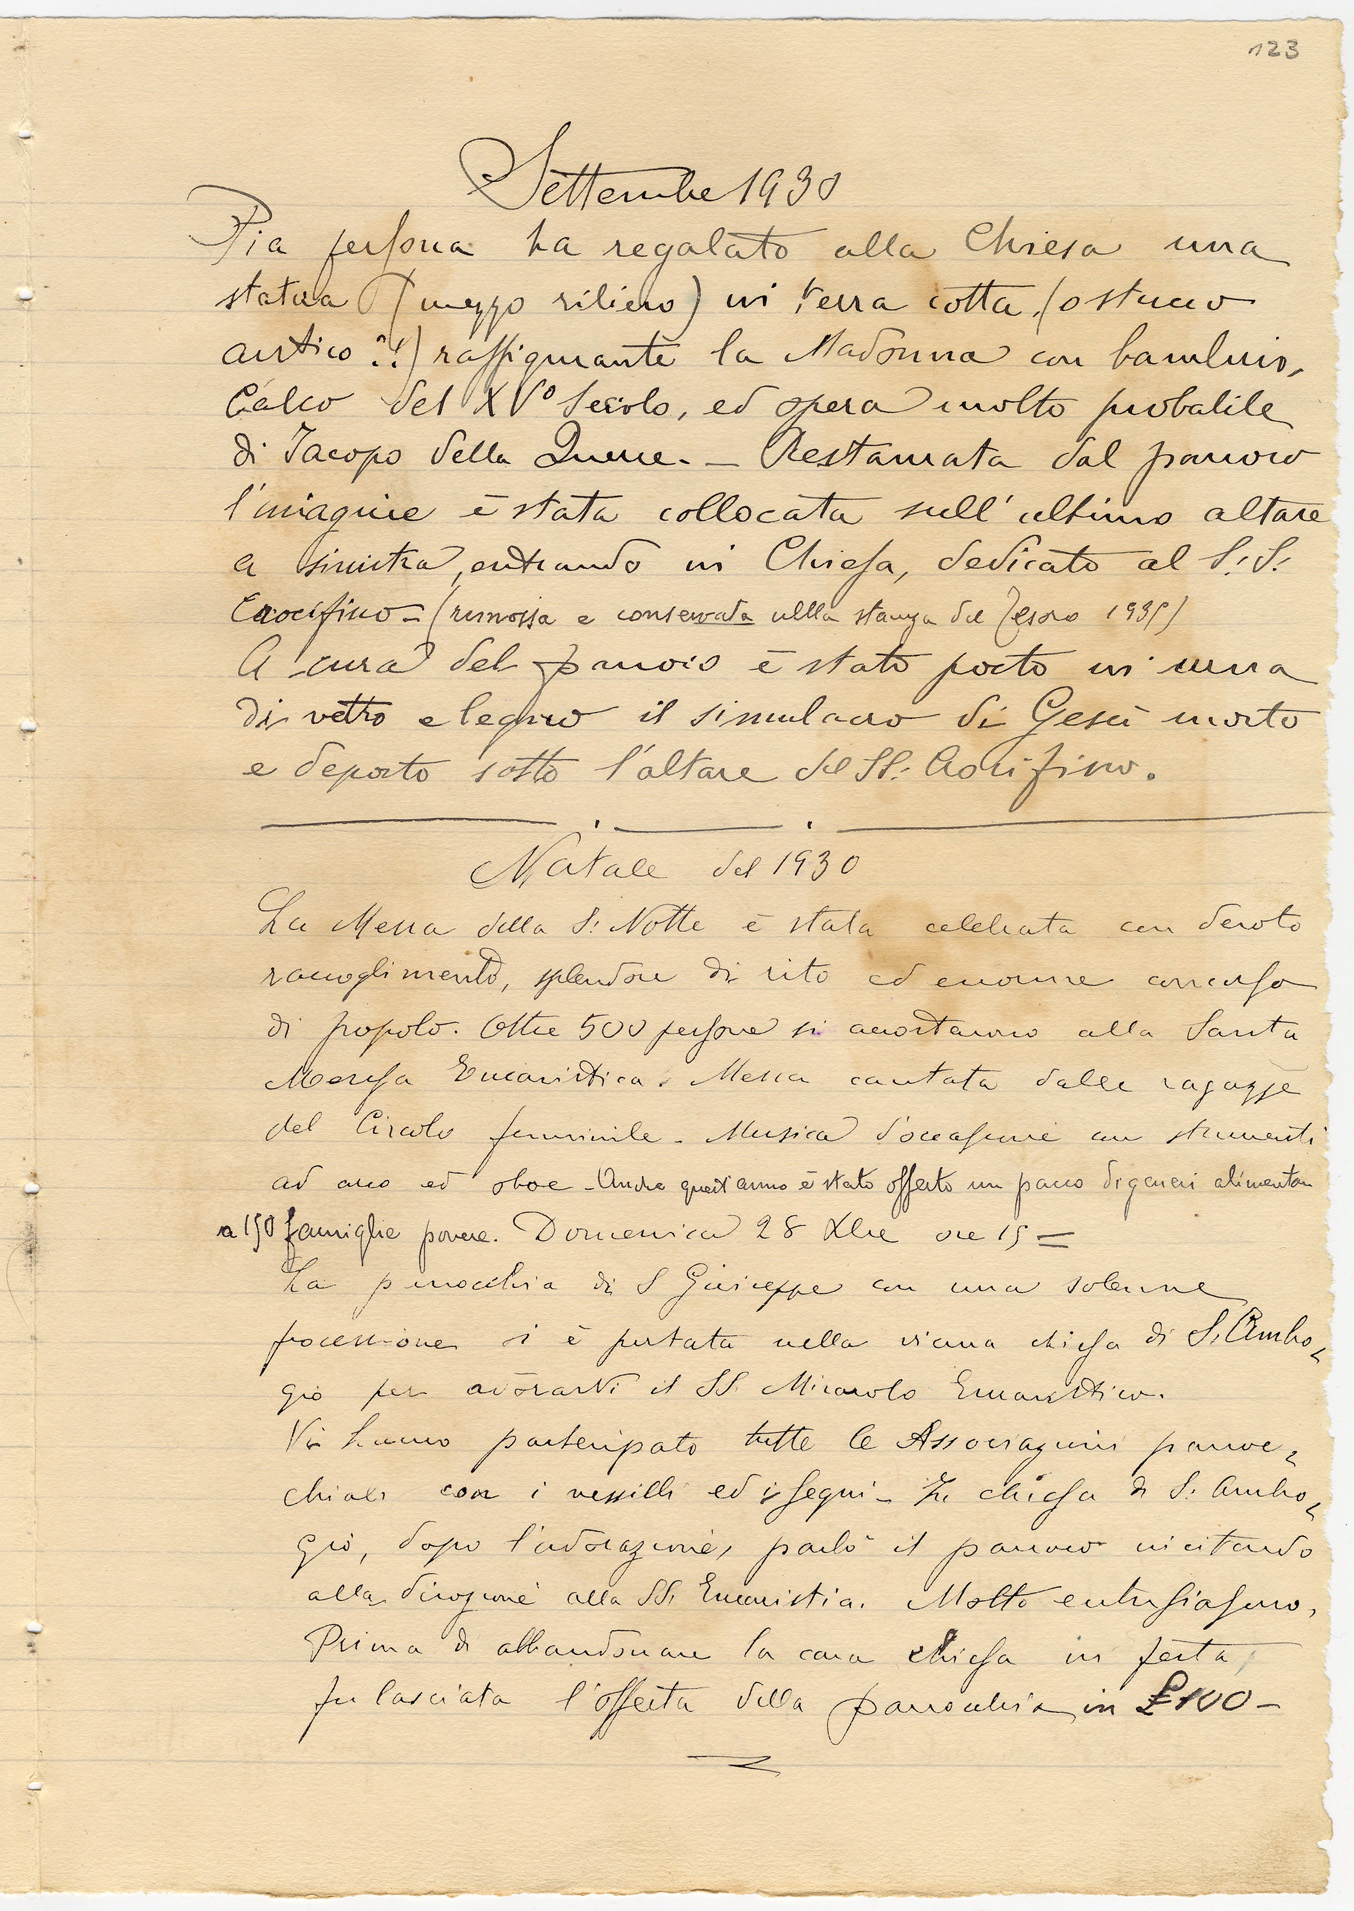 123
Settembre 1930
Pia persona ha regalato alla Chiesa una
statua (mezzo rilievo) in terra cotta (o stucco
antico ?!) raffigurante la Madonna con bambino,
Calco del XV° secolo, ed opera molto probabile
di Jacopo della Querce. — Restaurata dal parroco
l'imagine è stata collocata sull'ultimo altare
a sinistra, entrando in Chiesa, dedicato al S.S.
Crocifisso – (rimossa e conservata nella stanza del Tesoro 1935)
A cura del parroco è stato posto in urna
di vetro e legno il simulacro di Gesù morto
e deposto sotto l'altare del SS. Crocifisso.
Natale del 1930
La Messa della S. Notte è stata celebrata con devoto
raccoglimento, splendore di rito ed enorme concorso
di popolo. Oltre 500 persone si accostarono alla Santa
Mensa Eucaristica. Messa cantata dalle ragazze
del Circolo femminile. Musica d'occasione con strumenti
ad arco ed oboe – Anche quest'anno è stato offerto un pacco di generi alimentari
a 150 famiglie povere. Domenica 28 Xbre ore 15 =
La parrocchia di S Giuseppe con una solenne
processione si è portata nella vicina chiesa di S. Ambro-
gio per adorarvi il SS. Miracolo Eucaristico.
Vi hanno partecipato tutte le Associazioni parroc-
chiali con i vessilli ed insegni – In chiesa di S. Ambro-
gio, dopo l'adorazione, parlò il parroco incitando
alla divozione alla SS. Eucaristia. Molto entusiasmo.
Prima di abbandonare la cara chiesa in festa
fu lasciata l'offerta della parrocchia in £100 –